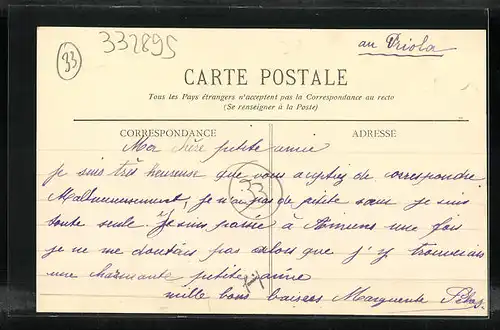 332895
33
au Oriola
CARTE POSTALE
Tous les Pays étrangers n'acceptent pas la Correspondance au recto
(Se renseigner à la Poste)
CORRESPONDANCE
ADRESSE
Ma chère petite amie
je suis très heureuse que vous acceptiez de correspondre.
Malheureusement je n'ai pas de petite sœur je suis
33
toute seule. Je suis passée à Amiens une fois
je ne me doutais pas alors que j'y trouverais
une charmante petite amie
mille bons baisers Marguerite